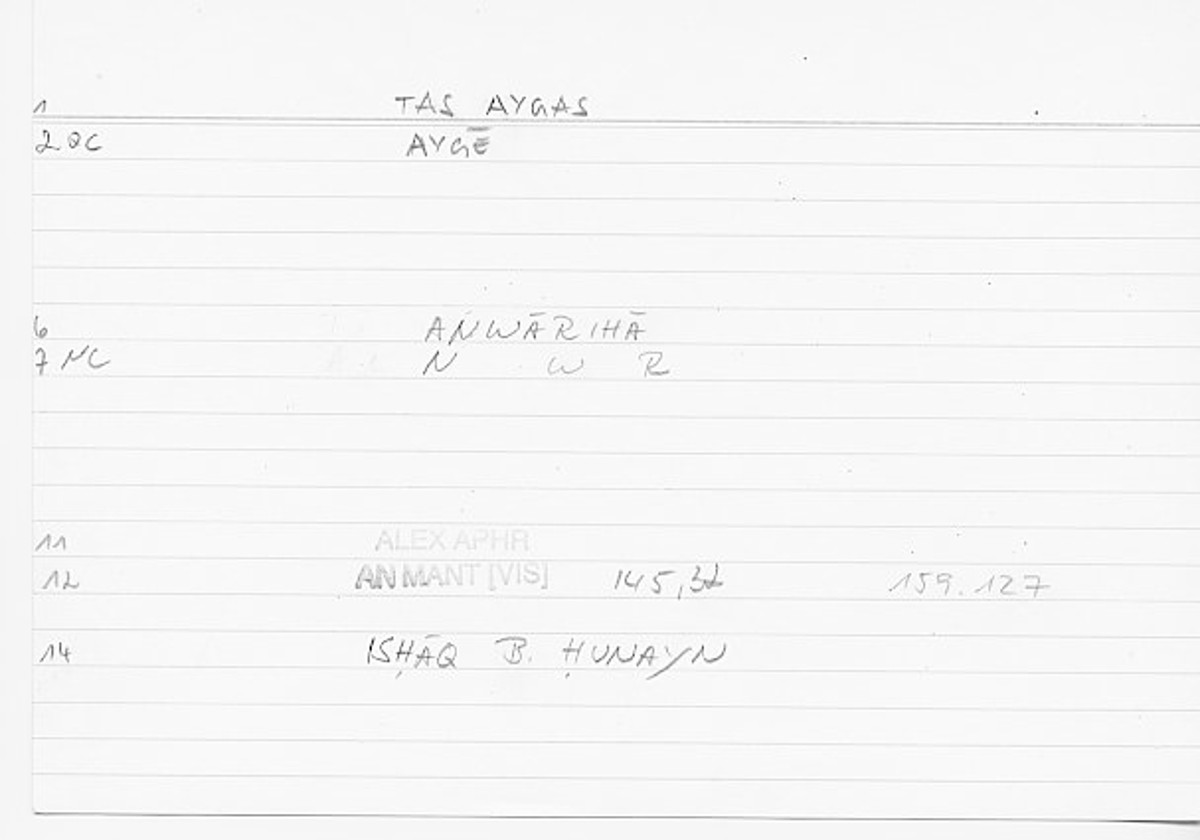 1 TAS AYGAS
2 QC AYGĒ
6 ANWĀRIHĀ
7 NC N W R
11 ALEX APHR
12 AN MANT [VIS] 145, 159.127
14 ISḤĀQ B. ḤUNAYN